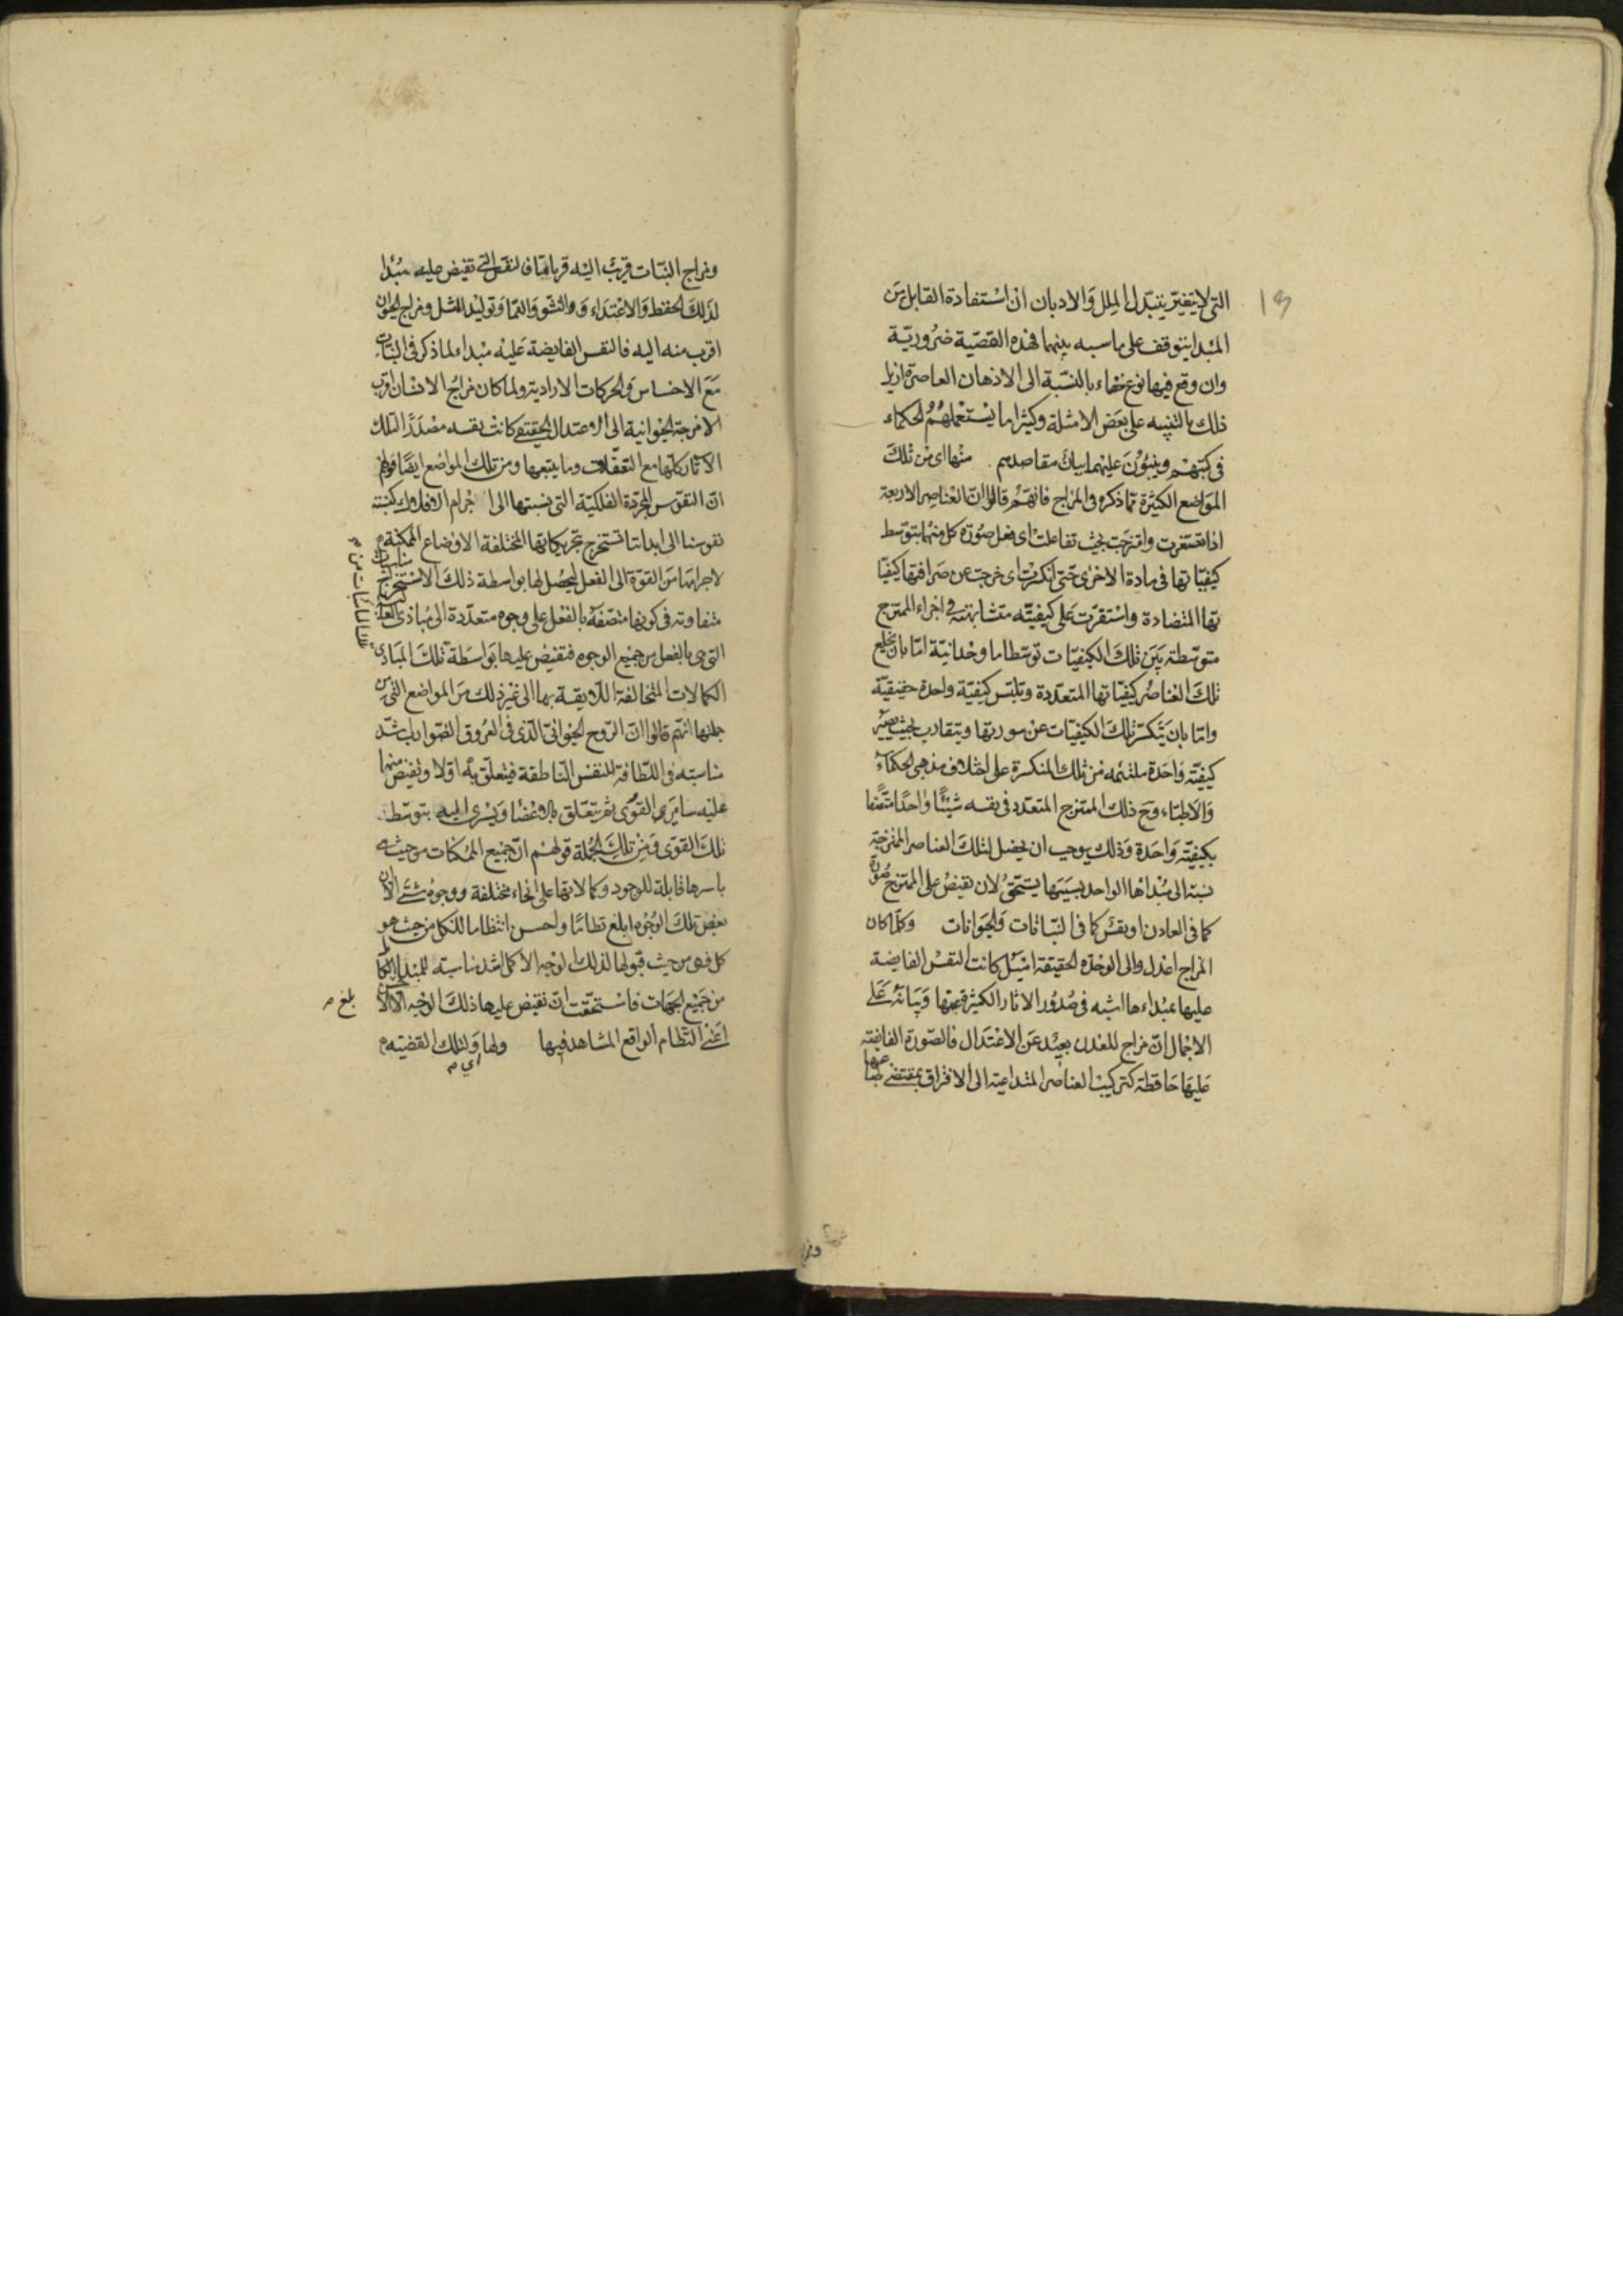 التى لا يتغير بتبدل الملل والاديان ان استفادة القابل من
المبدا يتوقف على مناسبه بينهما فهذه القضية ضرورية
وان وقع فيها نوع خفاء بالنسبة الى الاذهان القاصرة ازيل
ذلك بالتنبيه على بعض الامثلة وكثيرا ما يستعملهم الحكماء
فى كتبهم ويبنون عليهما بيان مقاصدهم منها اى من تلك
المواضع الكثيرة مما ذكره فى المزاج فانهم قالوا ان العناصر الاربعة
اذا تصغرت وامتزجت بحيث تفاعلت اى فعل صورة كل منها بتوسط
كيفياتها فى مادة الاخرى حتى انكسرت اى خرجت عن صرافتها كيفيا
تها المتضادة واستقرت على كيفيته متشابهته فى اجزاء الممتزج
متوسطة بين تلك الكيفيات توسطا ما وحدانية اما بان تخلع
تلك العناصر كيفياتها المتعددة وتلبس كيفية واحدة حقيقية
واما بان يتكسر تلك الكيفيات عن سورتها ويتقارب بحيث يصير
كيفيته واحدة ملتئمه من تلك المنكسرة على اختلاف مذهبى الحكماء
والاطباء وح ذلك الممتزج المتعدد فى نفسه شيئا واحدا متصفا
بكيفيته واحدة وذلك يوجب ان يحصل لتلك العناصر الممتزجة
نسبة الى مبداها الواحد بسببها يستحق لان تفيض على الممتزج صورة
كما فى المعادن او نفس كما فى النباتات والحيوانات وكلما كان
المزاج اعدل والى الوحدة الحقيقة اميل كانت النفس الفايضة
عليها بمبداءها اشبه فى صدور الاثار الكثيرة عنها وبيانه على
الاجمال ان مزاج المعدن بعيد عن الاعتدال فالصورة الفايضة
عليها حافظة لتركيب العناصر المتداعية الى الافتراق بمقتضى طباعها
ومزاج النبات قريب اليه قربا ما فالنفس التى تفيض عليه مبدا
لذلك الحفظ والاغتداء والنشو والنما وتوليد المثل ومزاج الحيوان
اقرب منه اليه فالنفس الفايضة عليه مبداء لما ذكر فى النبات
مع الاحساس والحركات الارادية ولما كان مزاج الانسان اقرب
الامزجة الحيوانية الى الاعتدال الحقيقى كانت نفسه مصدرا لتلك
الاثار كلها مع التعقلات وما يتبعها ومن تلك المواضع ايضا قولهم
ان النفوس المجردة الفلكية التى نسبتها الى اجرام الافلاك كنسبة
نفوسنا الى ابداننا تستخرج بتحريكاتها المختلفة الاوضاع الممكنة
لاجرامها من القوة الى الفعل ليحصل لها بواسطة ذلك الاستخراج
متفاوته فى كونها متصفة بالفعل على وجوه متعددة الى مباديها العالية
التى هى بالفعل من جميع الوجوه فتفيض عليها بواسطة تلك المبادى
الكمالات المتخالفة اللايقة بها الى غير ذلك من المواضع التى من
جملتها انهم قالوا ان الروح الحيوانى الذى فى العروق الضوارب اشد
مناسبته فى اللطافة للنفس الناطقة فيتعلق به اولا وتفيض منها
عليه ساير القوى ثم يتعلق بالاعضا ويسرى اليه بتوسط
تلك القوى ومن تلك الجملة قولهم ان جميع الممكنات من حيث هى
باسرها قابلة للوجود وكمالاتها على انحاء مختلفة ووجوه شتى الا ان
بعض تلك الوجوه ابلغ نظاما واحسن انتظاما للكل من حيث هو
كل فهى من حيث قبولها لذلك الوجه الاكمل اشد مناسبة للمبدا الكامل
من جميع الجهات فاستحقت ان تفيض عليها ذلك الوجه الاكمل
اعنى النظام الواقع المشاهد فيها ولها ولتلك القضية
اى
بلغ